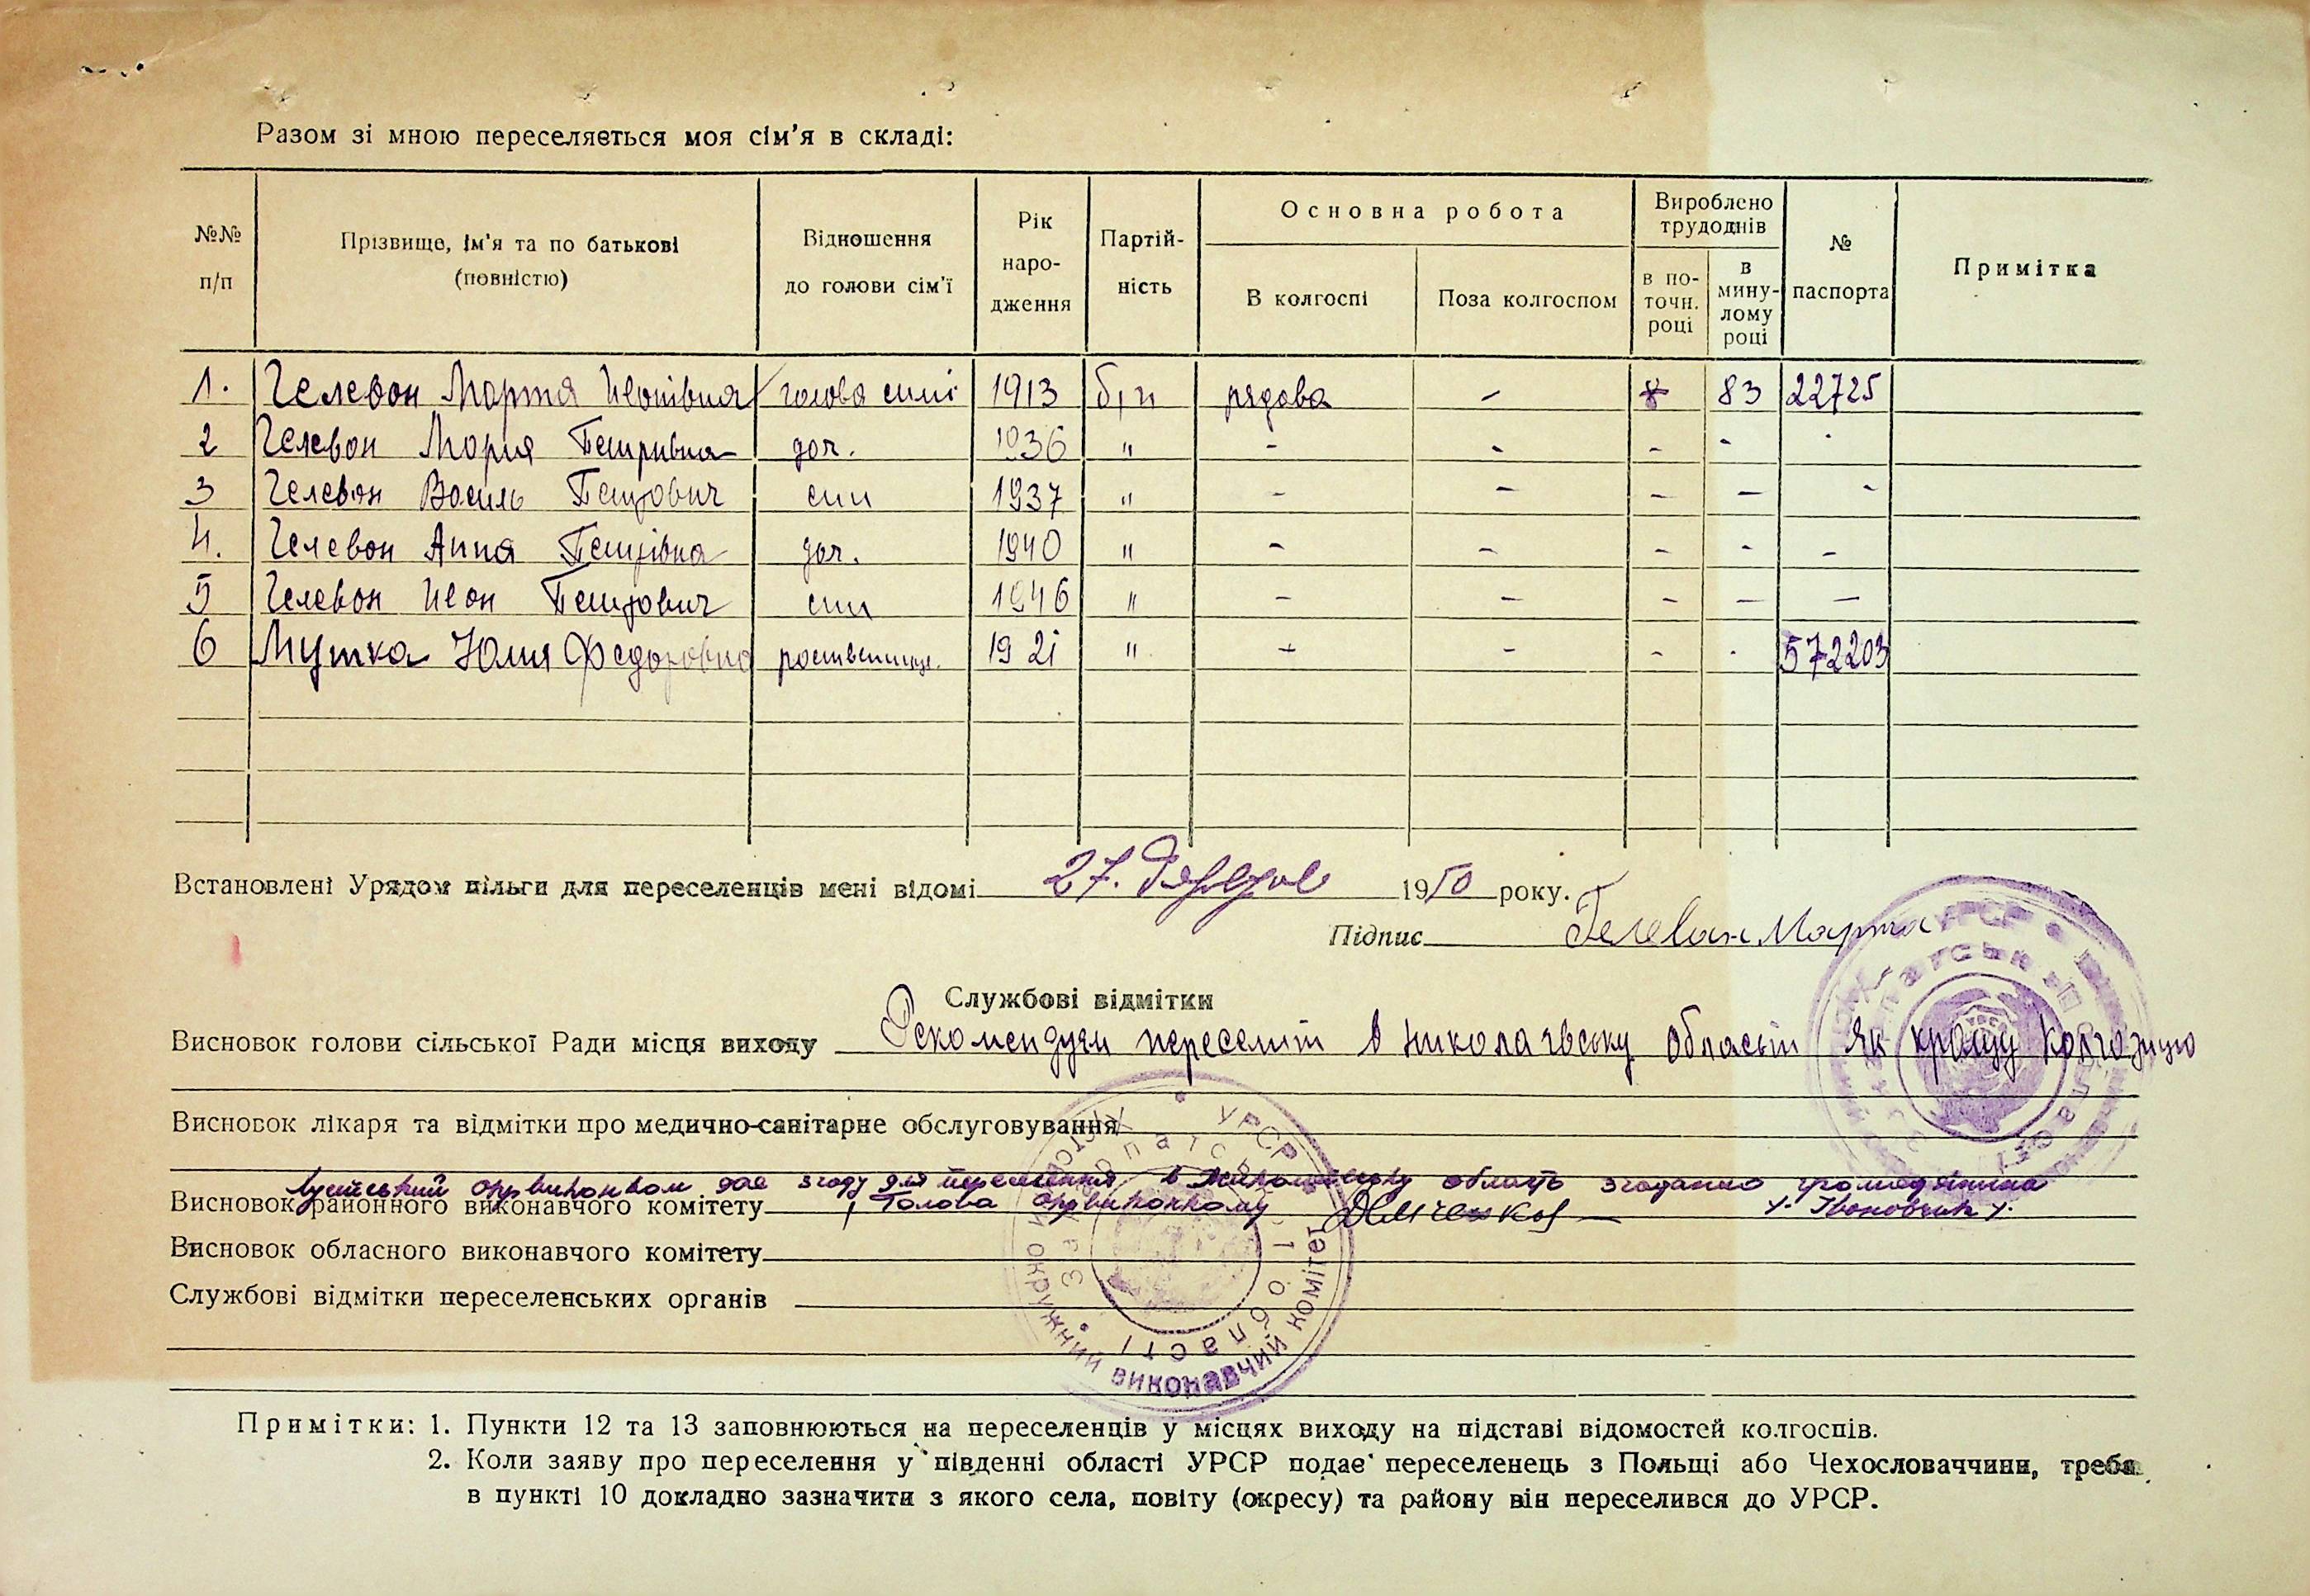 Разом зі мною переселяється моя сім'я в складі:
№№ п/п | Прізвище, ім'я та по батькові (повністю) | Відношення до голови сім'ї | Рік народження | Партійність | Основна робота | Вироблено трудоднів | № паспорта | Примітка
В колгоспі | Поза колгоспом | в поточн. році | в минулому році
1. Гелевон Мортя Ивонівна голова симі 1913 б,п рядова - 83 22725
2 Гелевон Мория Петривна доч. 1936 " - - - -
3 Гелевон Василь Петрович син 1937 " - - - - -
4. Гелевон Анна Петрівна доч. 1940 " - - - - -
5 Гелевон Ивон Петрович син 1946 " - - - - -
6 Мутка Юлия Федоровна 1921 " - - - 572203
Встановлені Урядом пільги для переселенців мені відомі 27. 1950 року.
Підпис Гелеван Марта
Службові відмітки
Висновок голови сільської Ради місця виходу Рекомендуем переселит в николаевську область як кращу колгозницю
Висновок лікаря та відмітки про медично-санітарне обслуговування
окрвиконком дае згоду для переселення в область згоданно громадянина
Висновок районного виконавчого комітету Голова окрвиконкому
Висновок обласного виконавчого комітету
Службові відмітки переселенських органів
УРСР окружний виконавчий комітет Закарпатської області
Примітки: 1. Пункти 12 та 13 заповнюються на переселенців у місцях виходу на підставі відомостей колгоспів.
2. Коли заяву про переселення у південні області УРСР подає переселенець з Польщі або Чехословаччини, треба
в пункті 10 докладно зазначити з якого села, повіту (окресу) та району він переселився до УРСР.